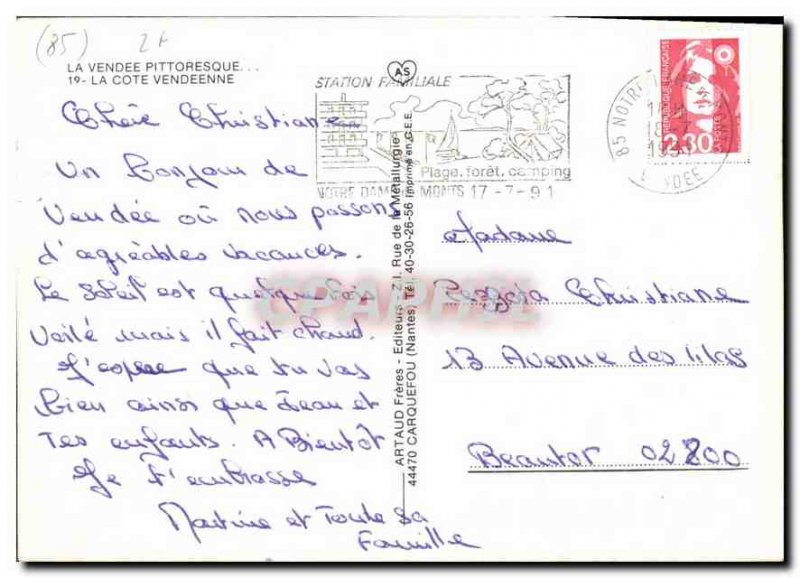 (85) 2f
LA VENDEE PITTORESQUE...
19- LA COTE VENDEENNE
AS
STATION FAMILIALE
Plage, forêt, camping
NOTRE DAME MONTS 17-7-91
85 NOTRE
VENDEE
REPUBLIQUE FRANÇAISE
2,30
LA POSTE
Chère Christiane
Un Bonjour de
Vendée où nous passons
d'agréables vacances.
Le Soleil est quelquefois
Voilé mais il fait chaud.
J'espere que tu vas
bien ainsi que Jean et
Tes enfants. A Bientôt
Je t'embrasse
Martine et Toute Sa
Famille
ARTAUD Frères - Editeurs - Z.I. Rue de la Métallurgie
44470 CARQUEFOU (Nantes) Tél. 40-30-26-56 Imprimé en C.E.E.
Madame
Christiane
13 Avenue des lilas
Beautor 02800
CPARAMA